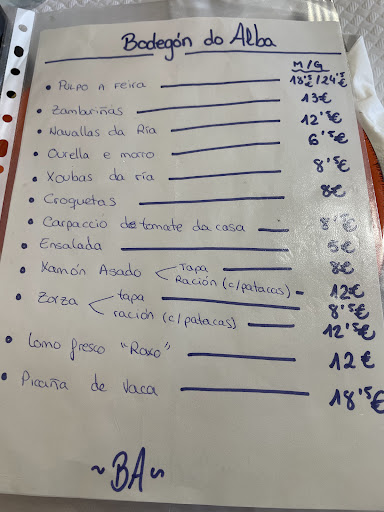 Bodegón do Alba
M/G
• Pulpo a feira 18'5€/24'5€
• Zamburiñas 13€
• Navallas da Ría 12'5€
• Ourella e morro 6'5€
• Xoubas da ría 8'5€
• Croquetas 8€
• Carpaccio de tomate da casa 8'5€
• Ensalada 5€
• Xamón Asado < Tapa 8€
Ración (c/patacas) 12€
• Zorza < tapa 8'5€
ración (c/patacas) 12'5€
• Lomo fresco "Roxo" 12€
• Picaña de Vaca 18'5€
~BA~